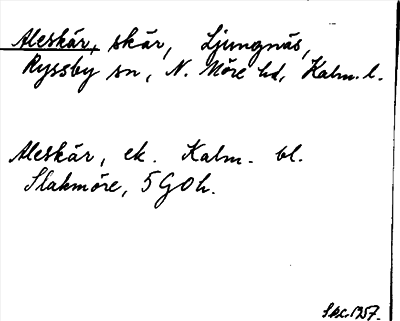 Aleskär, skär, Ljungnäs,
Ryssby sn, N. Möre hd, Kalm. l.
Aleskär, ek. Kalm. bl.
Slakmöre, 5 G O h.